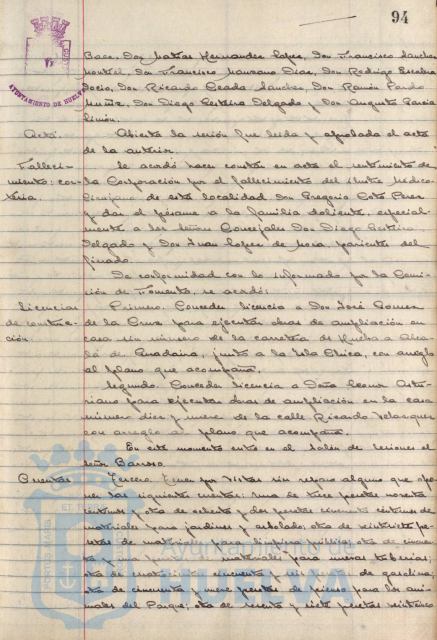 94
AYUNTAMIENTO DE HUELVA
Baco, Don Matías Hernandez Lopez, Don Francisco Sanchez
Montiel, Don Francisco Manzano Diaz, Don Rodrigo Escalona
Don Ricardo Sanchez, Don Ramón Pardo
Muñiz, Don Diego Delgado y Don Augusto García
Limón.
Acta. Abierta la sesión fue leida y aprobada el acta
de la anterior.
Falleci- Se acordó hacer constar en acta el sentimiento de
miento: con- la Corporación por el fallecimiento del ilustre Médico
de esta localidad Don Gregorio Perez
y dar el pésame a la familia doliente, especial-
mente a los Señores Concejales Don Diego
Delgado y Don Juan Lopez de Mora, parientes del
finado.
De conformidad con lo informado por la Comi-
sión de Fomento, se acordó:
Licencias Primero. Conceder licencia a Don José Gomez
de construc- de la Cruz para ejecutar obras de ampliación en
ción. casa sin número de la carretera de Huelva a Alca-
lá de Guadaira, junto a la Isla Chica, con arreglo
al plano que acompaña.
Segundo. Conceder licencia a Doña Leonor
para ejecutar obras de ampliación en la casa
número diez y nueve de la calle Ricardo Velazquez
con arreglo al plano que acompaña.
En este momento entra en el salón de sesiones el
Señor Barroso.
Cuentas Tercero. por vistas sin reparo alguno que opo-
ner las siguientes cuentas: una de trece pesetas noventa
céntimos y otra de ochenta y dos pesetas cincuenta céntimos de
materiales para jardines y arbolado; otra de veintisiete pe-
setas de materiales para limpieza pública; otra de cincuen-
ta y una materiales para nuevas tuberias;
otra de cincuenta y de gasolina;
otra de cincuenta y nueve pesetas de pienso para los ani-
males del Parque; otra de sesenta y siete pesetas
Ayuntamiento de
HUELVA